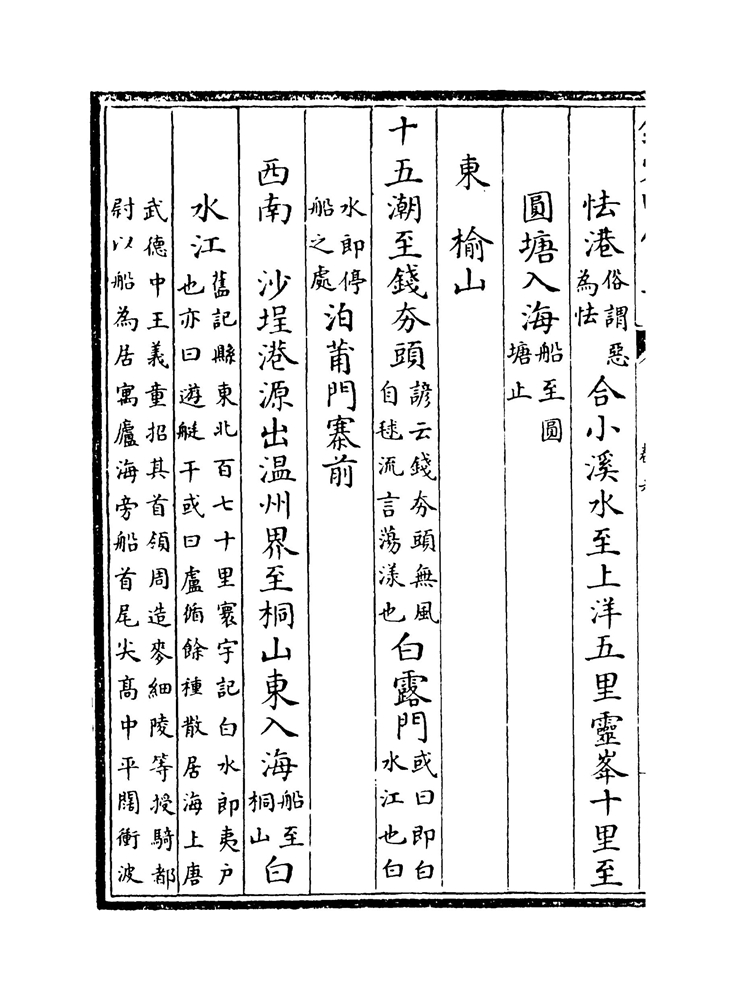 怯港俗謂惡為怯合小溪水至上洋五里靈峯十里至
圓塘入海船至圓塘止
東　榆山
十五潮至錢夯頭諺云錢夯頭無風自毬流言蕩漾也白露門或曰即白水江也白
水即停船之處泊莆門寨前
西南　沙埕港源出温州界至桐山東入海船至桐山白
水江舊記縣東北百七十里寰宇記白水即夷户也亦曰遊艇干或曰盧循餘種散居海上唐
武德中王義童招其首領周造麥細陵等授騎都尉以船為居寓廬海旁船首尾尖髙中平闊衝波